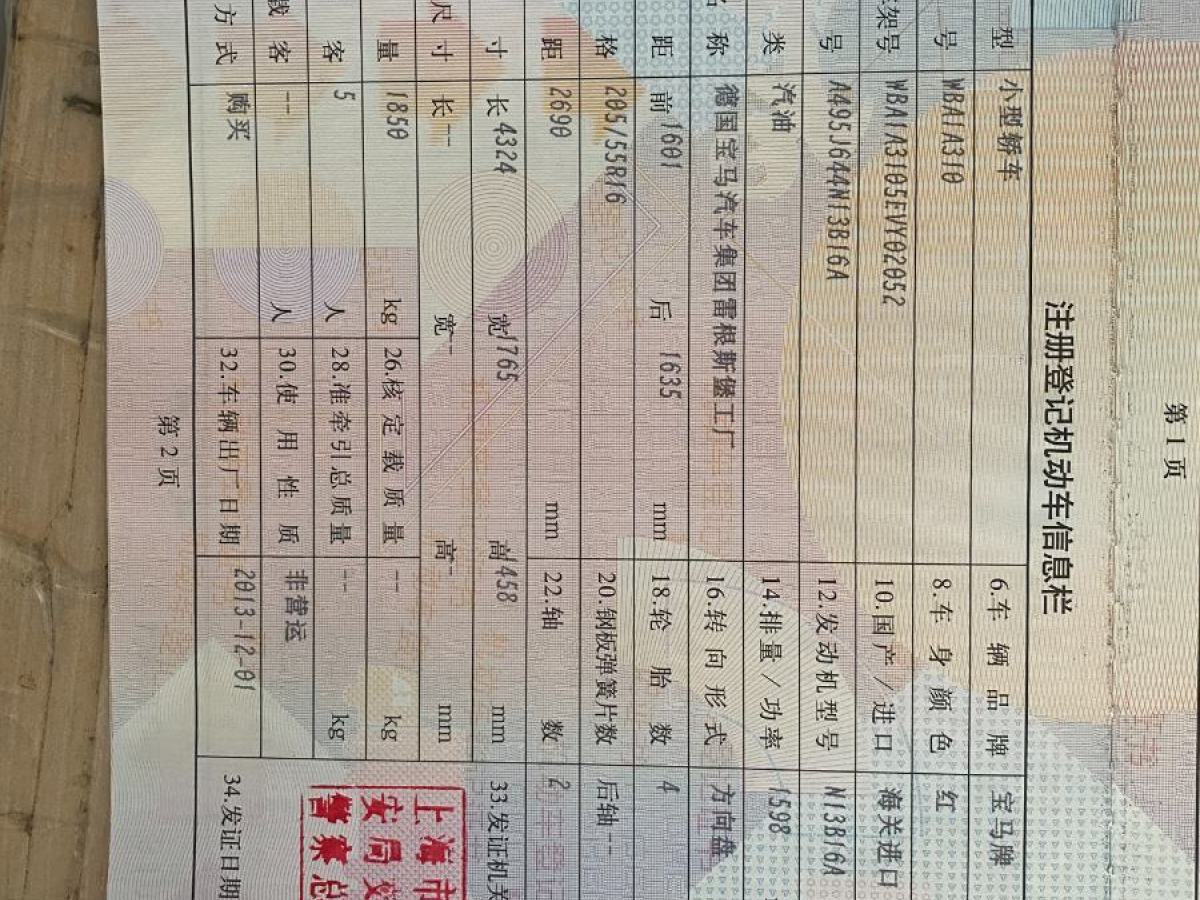 第1页
注册登记机动车信息栏
型 小型轿车 6.车辆品牌 宝马牌
号 WBA1A310 8.车身颜色 红
架号 WBA1A3105EVY02052 10.国产/进口 海关进口
号 A495J644N13B16A 12.发动机型号 N13B16A
类 汽油 14.排量/功率 1598
称 德国宝马汽车集团雷根斯堡工厂 16.转向形式 方向盘
距 前 1601 后 1635 mm 18.轮胎数 4
格 205/55R16 20.钢板弹簧片数 后轴--
距 2690 mm 22.轴数 2
寸 长 4324 宽 1765 高 1458 mm 33.发证机关
尺寸 长-- 宽-- 高- mm
量 1850 kg 26.核定载质量 -- kg
客 5 人 28.准牵引总质量 -- kg
载客 -- 人 30.使用性质 非营运
方式 购买 32.车辆出厂日期 2013-12-01 34.发证日期
上海市
安局交
警察总
第2页